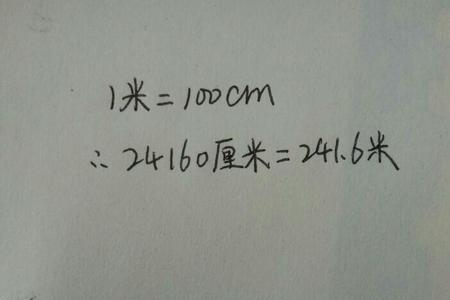 1米=100cm
∴ 24160厘米=241.6米